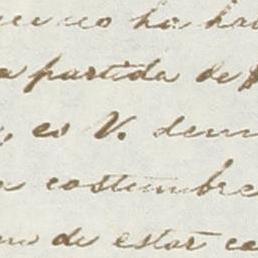 no ha ha
a partida de
, es V. dem
costumbre
de estar ca